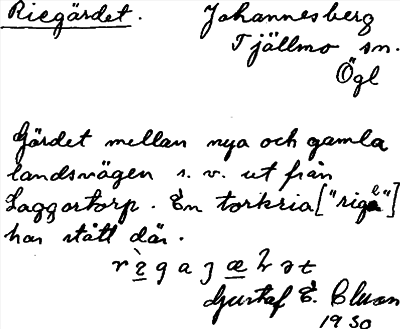 Riegärdet. Johannesberg
Tjällmo sn.
Ögl
Gärdet mellan nya och gamla
landsvägen s. v. ut från
Laggartorp. En torkria ["riga"]
har stått där.
Gustaf E. Clason
1930